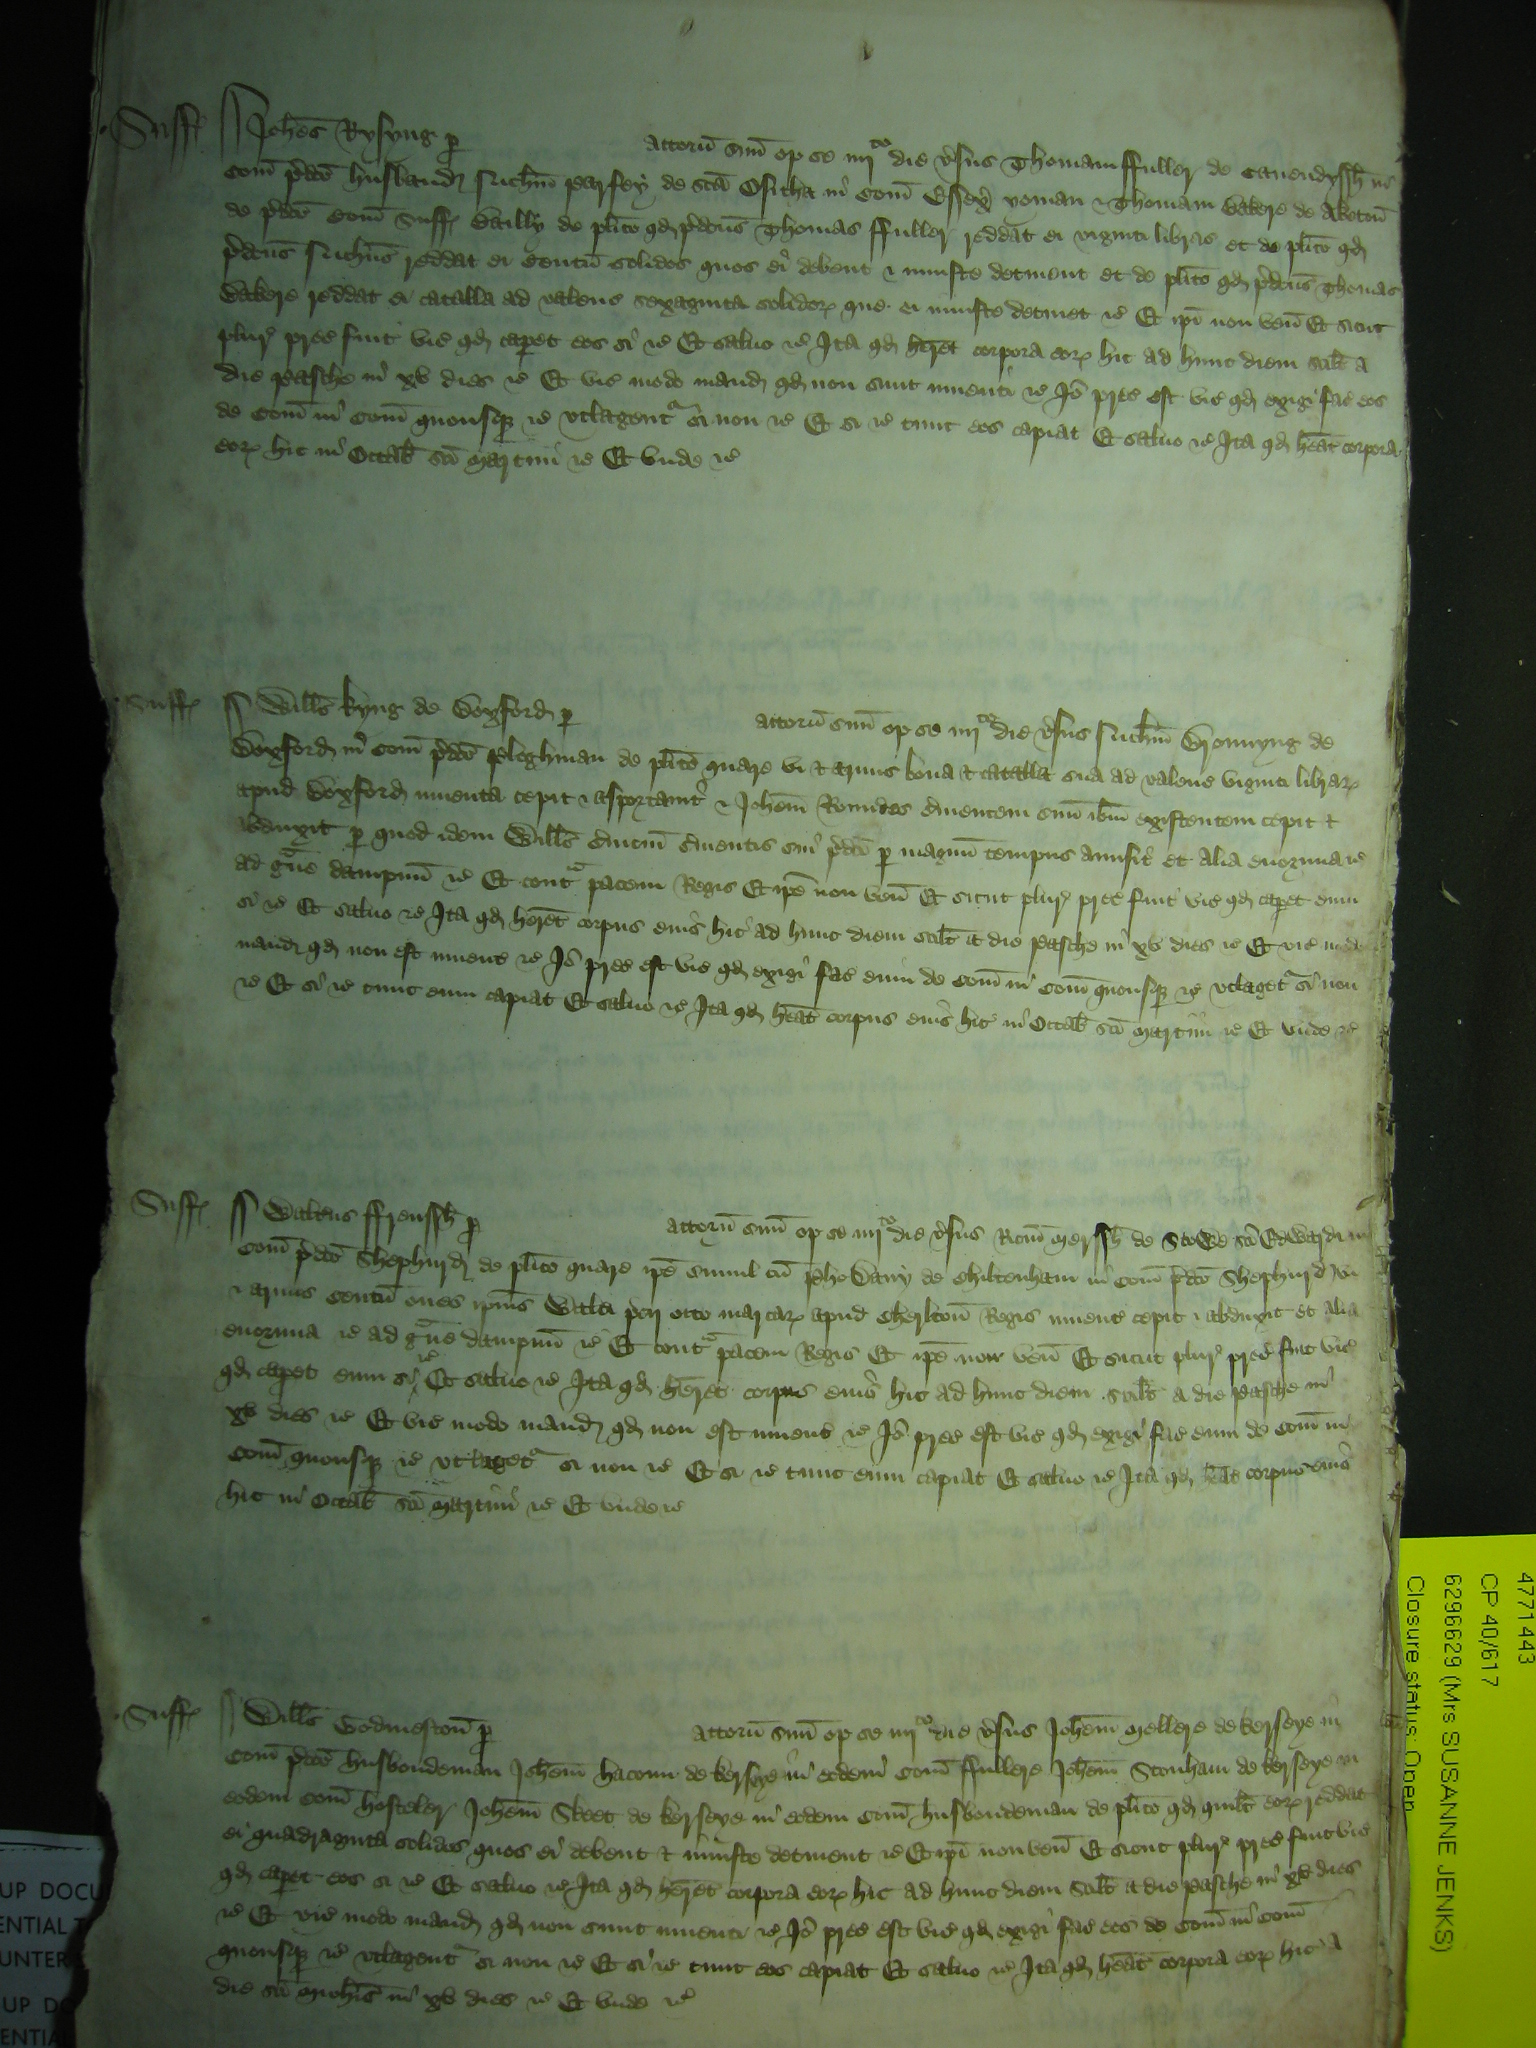 Suff Johes Rysyng p attorn suu op se iiijto die vsus Thomam ffuller de Cavendyssh in
Com pdco husband Ricm Parsey de sca Ositha in Com Essex yoman & Thomam Bakere de Aketon
de pdco Com Suff Bailly de plito qd pdcus Thomas ffuller reddat ei viginti libras et de plito qd
pdcus Ricus reddat ei Centu solidos quos ei debent & iniuste detinent et de plito qd pdcus Thomas
Bakere reddat ei catalla ad valenc sexaginta solidor que ei iniuste detinet &c Et ipi non ven Et sicut
plur prec fuit vic qd capet eos si &c Et saluo &c Ita qd heret corpora eor hic ad hunc diem scilt a
die Pasche in xv dies &c Et vic modo mand qd non sunt inuenti &c Jo prec est vic qd exigi fac eos
de Com in Com quousq &c vtlagent si non &c Et si &c tunc eos capiat Et saluo &c Ita qd heat corpora
eor hic in Octab sci Martini &c Et vnde &c
Suff Wills Kyng de Boxford p attorn suu op se iiijto die vsus Ricm Gronnyng de
Boxford in Com pdco Ploghman de plito quare vi & armis bona & catalla sua ad valenc viginti librar
apud Boxford inuenta cepit & asportauit & Johem seruientem suu ibm existentem cepit &
abduxit p quod idem Wills seruiciu seruientis sui pdci p magnu tempus amisit et alia enormia &c
ad graue dampnu &c Et contra pacem Regis Et ipe non ven Et sicut plur prec fuit vic qd capet eum
si &c Et saluo &c Ita qd heret corpus eius hic ad hunc diem scilt a die Pasche in xv dies &c Et vic modo
mand qd non est inuent &c Jo prec est vic qd exigi fac eum de Com in Com quousq &c vtlaget si non
&c Et si &c tunc eum capiat Et saluo &c Ita qd heat corpus eius hic in Octab sci Martini &c Et vnde &c
Suff Walterus ffrenssh p attorn suu op se iiijto die vsus Ricm Merssh de Stowe sci Edwardi in
Com pdco Shephurd de plito quare ipe simul cu de Chiltenham in Com pdco Shephurd vi
& armis Centu oues ipius Walti pcii octo marcar apud Cherlton Regis inuent cepit & abduxit et alia
enormia &c ad graue dampnu &c Et contra pacem Regis Et ipe non ven Et sicut plur prec fuit vic
qd capet eum si &c Et saluo &c Ita qd heret corpus eius hic ad hunc diem scilt a die Pasche in
xv dies &c Et vic modo mand qd non est inuent &c Jo prec est vic qd exigi fac eum de Com in
Com quousq &c vtlaget si non &c Et si &c tunc eum capiat Et saluo &c Ita qd heat corpus eius
hic in Octab sci Martini &c Et vnde &c
Suff Wills Godmeston p attorn suu op se iiijto die vsus Johem Mellere de Kerseye in
Com pdco husbondeman Johem Hacoun de Kerseye in eodem Com ffullere Johem Stonham de Kerseye in
eodem Com hosteler Johem Skeet de Kerseye in eodem Com husbondeman de plito qd quilt eor reddat
ei quadraginta solidos quos ei debent & iniuste detinent &c Et ipi non ven Et sicut plur prec fuit vic
qd capet eos si &c Et saluo &c Ita qd heret corpora eor hic ad hunc diem scilt a die Pasche in xv dies
&c Et vic modo mand qd non sunt inuenti &c Jo prec est vic qd exigi fac eos de Com in Com
quousq &c vtlagent si non &c Et si &c tunc eos capiat Et saluo &c Ita qd heat corpora eor hic a
die sci Michis in xv dies &c Et vnde &c
4771443
CP 40/617
6296629 (Mrs SUSANNE JENKS)
Closure status: Open
UP DOCU
ENTIAL
UNTER
UP DO
ENTIA